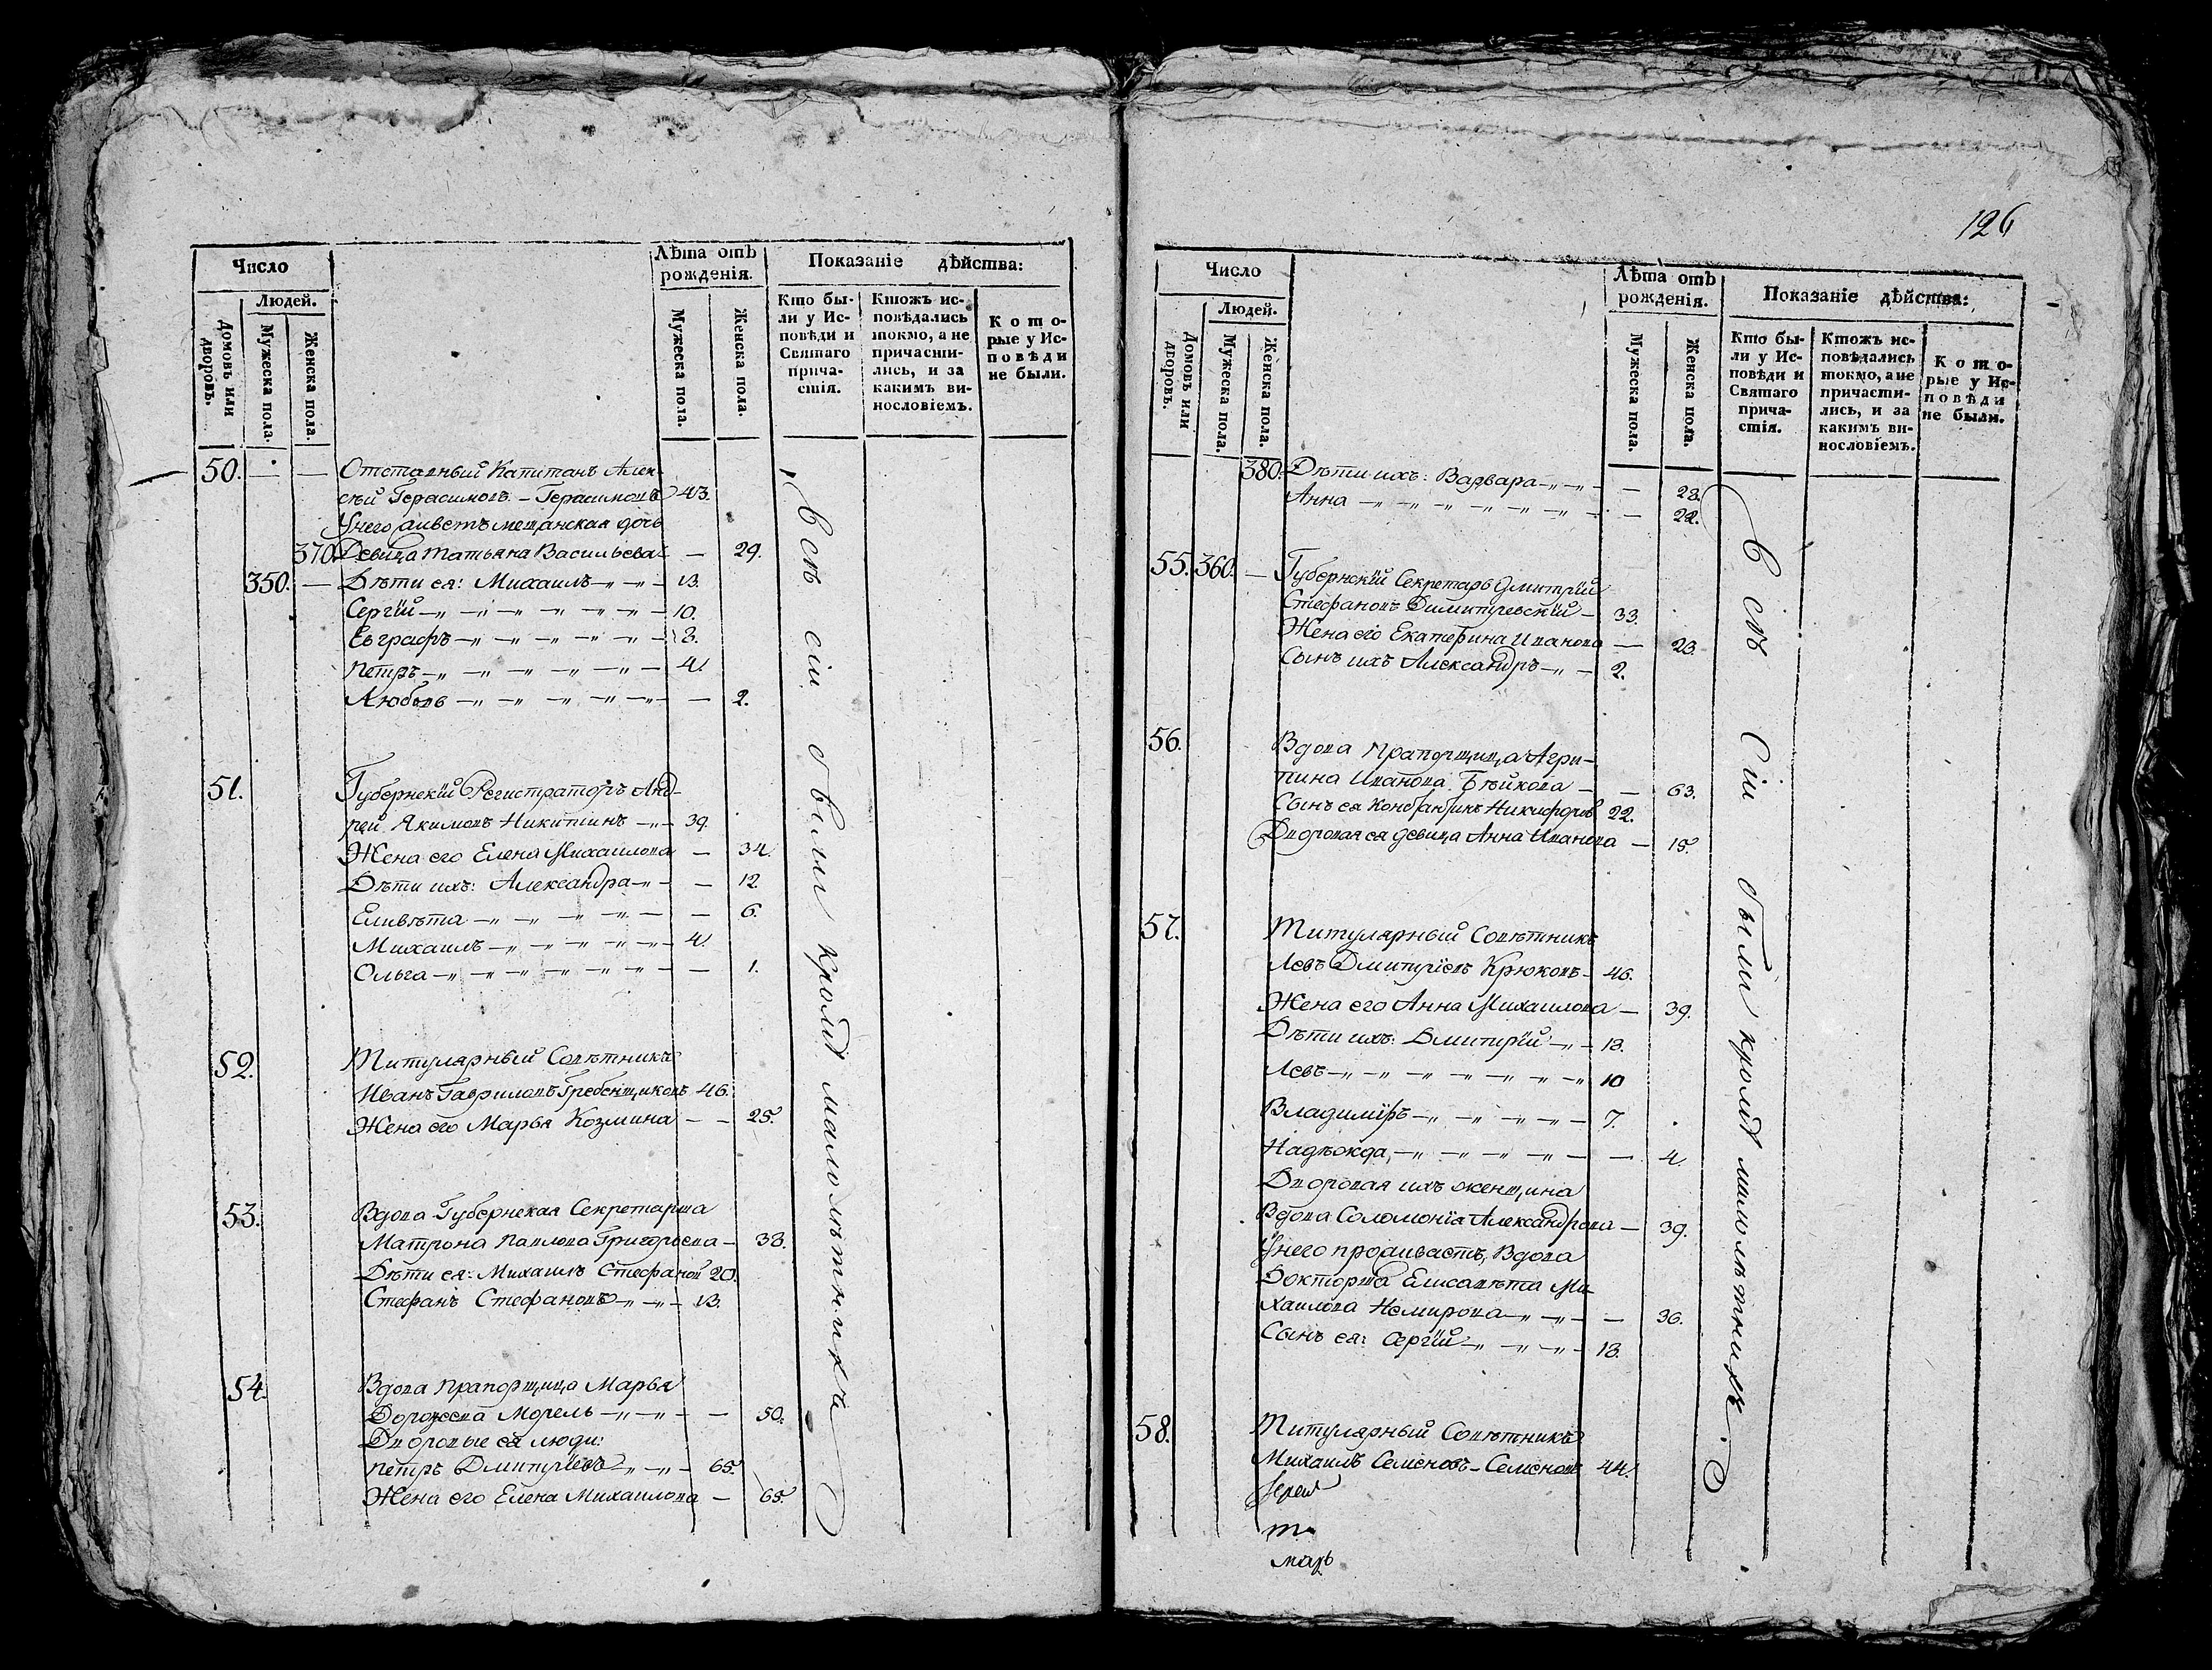 Число
Людей.
Домовъ или дворовъ.
Мужеска пола.
Женска пола.
Лѣта отъ рожденія.
Мужеска пола.
Женска пола.
Показаніе дѣйства:
Кто бы-
ли у Ис-
повѣди и
Святаго
прича-
стія.
Ктожъ ис-
повѣдались
токмо, а не
причасти-
лись, и за
какимъ ви-
нословіемъ.
Кото-
рые у Ис-
повѣди
не были.
50. — — Отставный Капитанъ Алек-
сѣй Герасимовъ - Герасимовъ 43.
У него живетъ мещанская дочь
370. Девица Татьяна Васильева — 29.
350. — Дѣти ея: Михаилъ — 13.
Сергій — 10.
Евграфъ — 8.
Петръ — 4.
Любовь — — 2.
51. Губернскій Регистраторъ Анд-
рей Якимовъ Никитинъ — 39.
Жена его Елена Михаилова — 34.
Дѣти ихъ: Александра — — 12.
Еливѣта — — 6.
Михаилъ — 4.
Ольга — — 1.
52. Титулярный Совѣтникъ
Иванъ Гавриловъ Гребенщиковъ 46.
Жена его Марья Козмина — — 25.
53. Вдова Губернская Секретарша
Матрона Павлова Григорьева — 38.
Дѣти ея: Михаилъ Стефанов 20.
Стефанъ Стефановъ — 13.
54. Вдова Прапорщица Марья
Морель — — 50.
Дворовые ея люди:
Петръ Дмитріевъ — 65.
Жена его Елена Михаилова — 65.
Всѣ сіи были кромѣ малолѣтнихъ
126
Число
Людей.
Домовъ или дворовъ.
Мужеска пола.
Женска пола.
Лѣта отъ рожденія.
Мужеска пола.
Женска пола.
Показаніе дѣйства:
Кто бы-
ли у Ис-
повѣди и
Святаго
прича-
стія.
Ктожъ ис-
повѣдались
токмо, а не
причасти-
лись, и за
какимъ ви-
нословіемъ.
Кото-
рые у Ис-
повѣди
не были.
380. Дѣти ихъ: Варвара — — 23.
Анна — — 22.
55. 360. — Губернскій Секретарь Дмитрій
Стефановъ Димитріевскій — 33.
Жена его Екатерина Иванова — 23.
Сынъ ихъ Александръ — 2.
56. Вдова Прапорщица Агри-
пина Иванова Бѣйкова — — 63.
Сынъ ея Константинъ Никифоров 22.
Дворовая ея девица Анна Иванова — 15.
57. Титулярный Совѣтникъ
Левъ Дмитріевъ Крюковъ — 46.
Жена его Анна Михаилова — 39.
Дѣти ихъ: Дмитрій — 13.
Левъ — 10
Владиміръ — 7.
Надѣжда, — — 4.
Дворовая ихъ женщина
Вдова Соломонія Александрова — 39.
У него проживаетъ, Вдова
Докторша Елисавѣта Ми-
хаилова Немирова — — 36.
Сынъ ея: Сергій — 13.
58. Титулярный Совѣтникъ
Михаилъ Семеновъ - Семеновъ 44.
Всѣ сіи были кромѣ малолѣтнихъ.